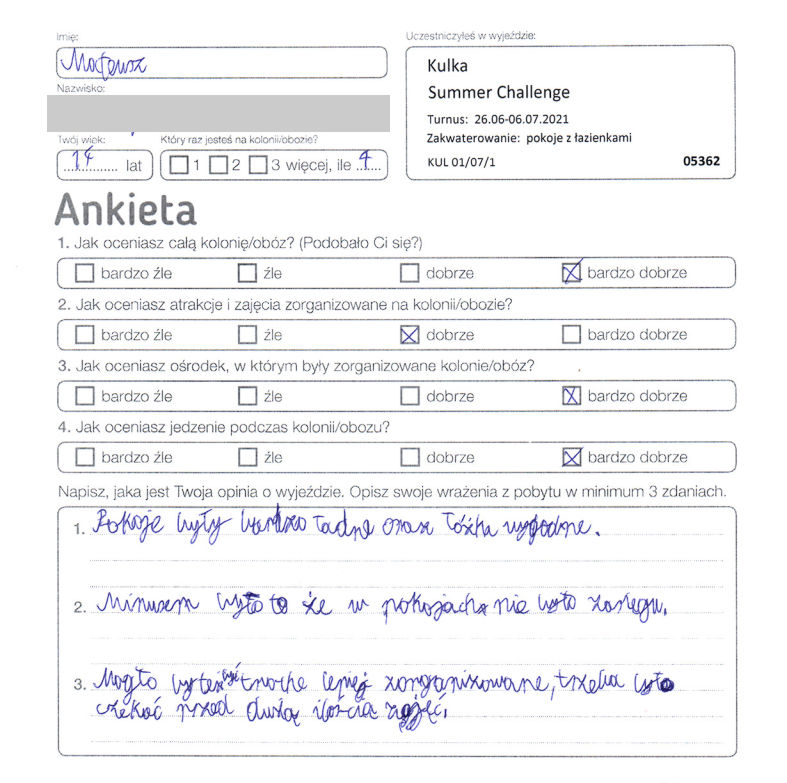 Imię:
Mateusz
Nazwisko:
Twój wiek:
14 lat
Który raz jesteś na kolonii/obozie?
1 2 3 więcej, ile 4
Uczestniczyłeś w wyjeździe:
Kulka
Summer Challenge
Turnus: 26.06-06.07.2021
Zakwaterowanie: pokoje z łazienkami
KUL 01/07/1 05362
Ankieta
1. Jak oceniasz całą kolonię/obóz? (Podobało Ci się?)
bardzo źle źle dobrze bardzo dobrze
2. Jak oceniasz atrakcje i zajęcia zorganizowane na kolonii/obozie?
bardzo źle źle dobrze bardzo dobrze
3. Jak oceniasz ośrodek, w którym były zorganizowane kolonie/obóz?
bardzo źle źle dobrze bardzo dobrze
4. Jak oceniasz jedzenie podczas kolonii/obozu?
bardzo źle źle dobrze bardzo dobrze
Napisz, jaka jest Twoja opinia o wyjeździe. Opisz swoje wrażenia z pobytu w minimum 3 zdaniach.
1. Pokoje były bardzo ładne oraz łóżka wygodne.
2. Minusem było to że w pokojach nie było zasięgu.
3. Mogło być troche lepiej zorganizowane, trzeba było
czekać przed dużą ilością zajęć.